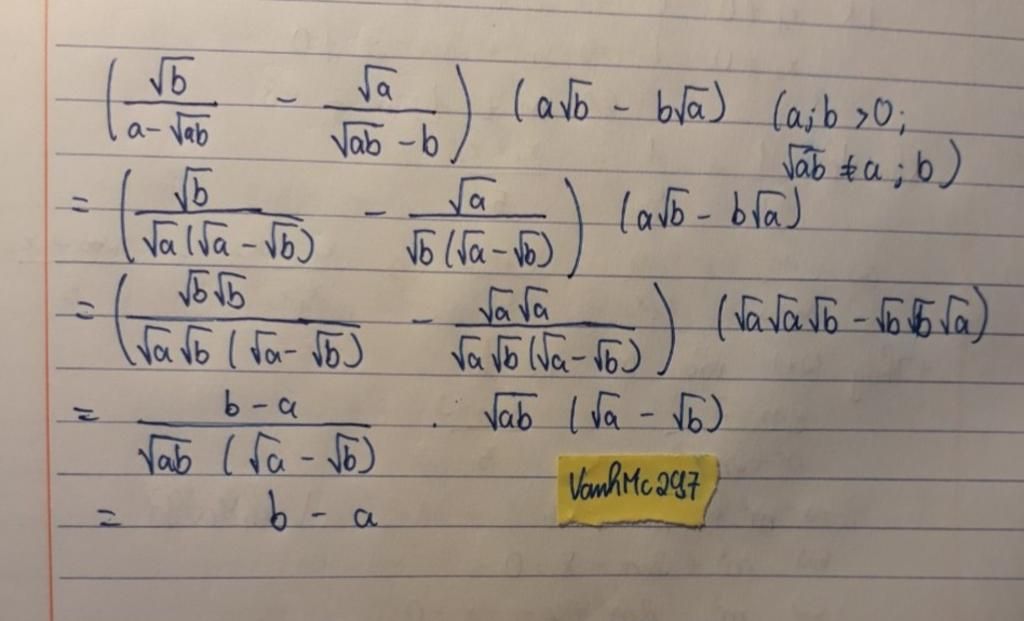 (√b/(a-√ab) - √a/(√ab-b)) (a√b - b√a) (a;b >0;
√ab ≠ a; b)
= (√b/(√a(√a-√b)) - √a/(√b(√a-√b))) (a√b - b√a)
= (√b√b/(√a√b(√a-√b)) - √a√a/(√a√b(√a-√b))) (√a√a√b - √b√b√a)
= (b-a)/(√ab (√a-√b)) . √ab (√a - √b)
= b - a
VanhMc297